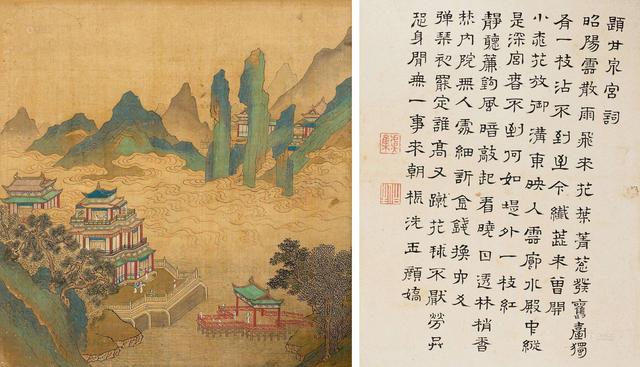 題甘泉宮詞
昭陽雲散雨飛來花葉菁葱發舊臺獨
有一枝沾不到至今纖蕋未曾開
小桃花放御溝東映人雲廊水殿中縱
是深宮春不到何如堤外一枝紅
靜聽簾鉤風暗敲起看曉日透林梢
内院無人處細訴金錢換卯爻
弹琴初罷定誰高又蹴花球不厭勞
身閒無一事來朝振洗五顏嬌